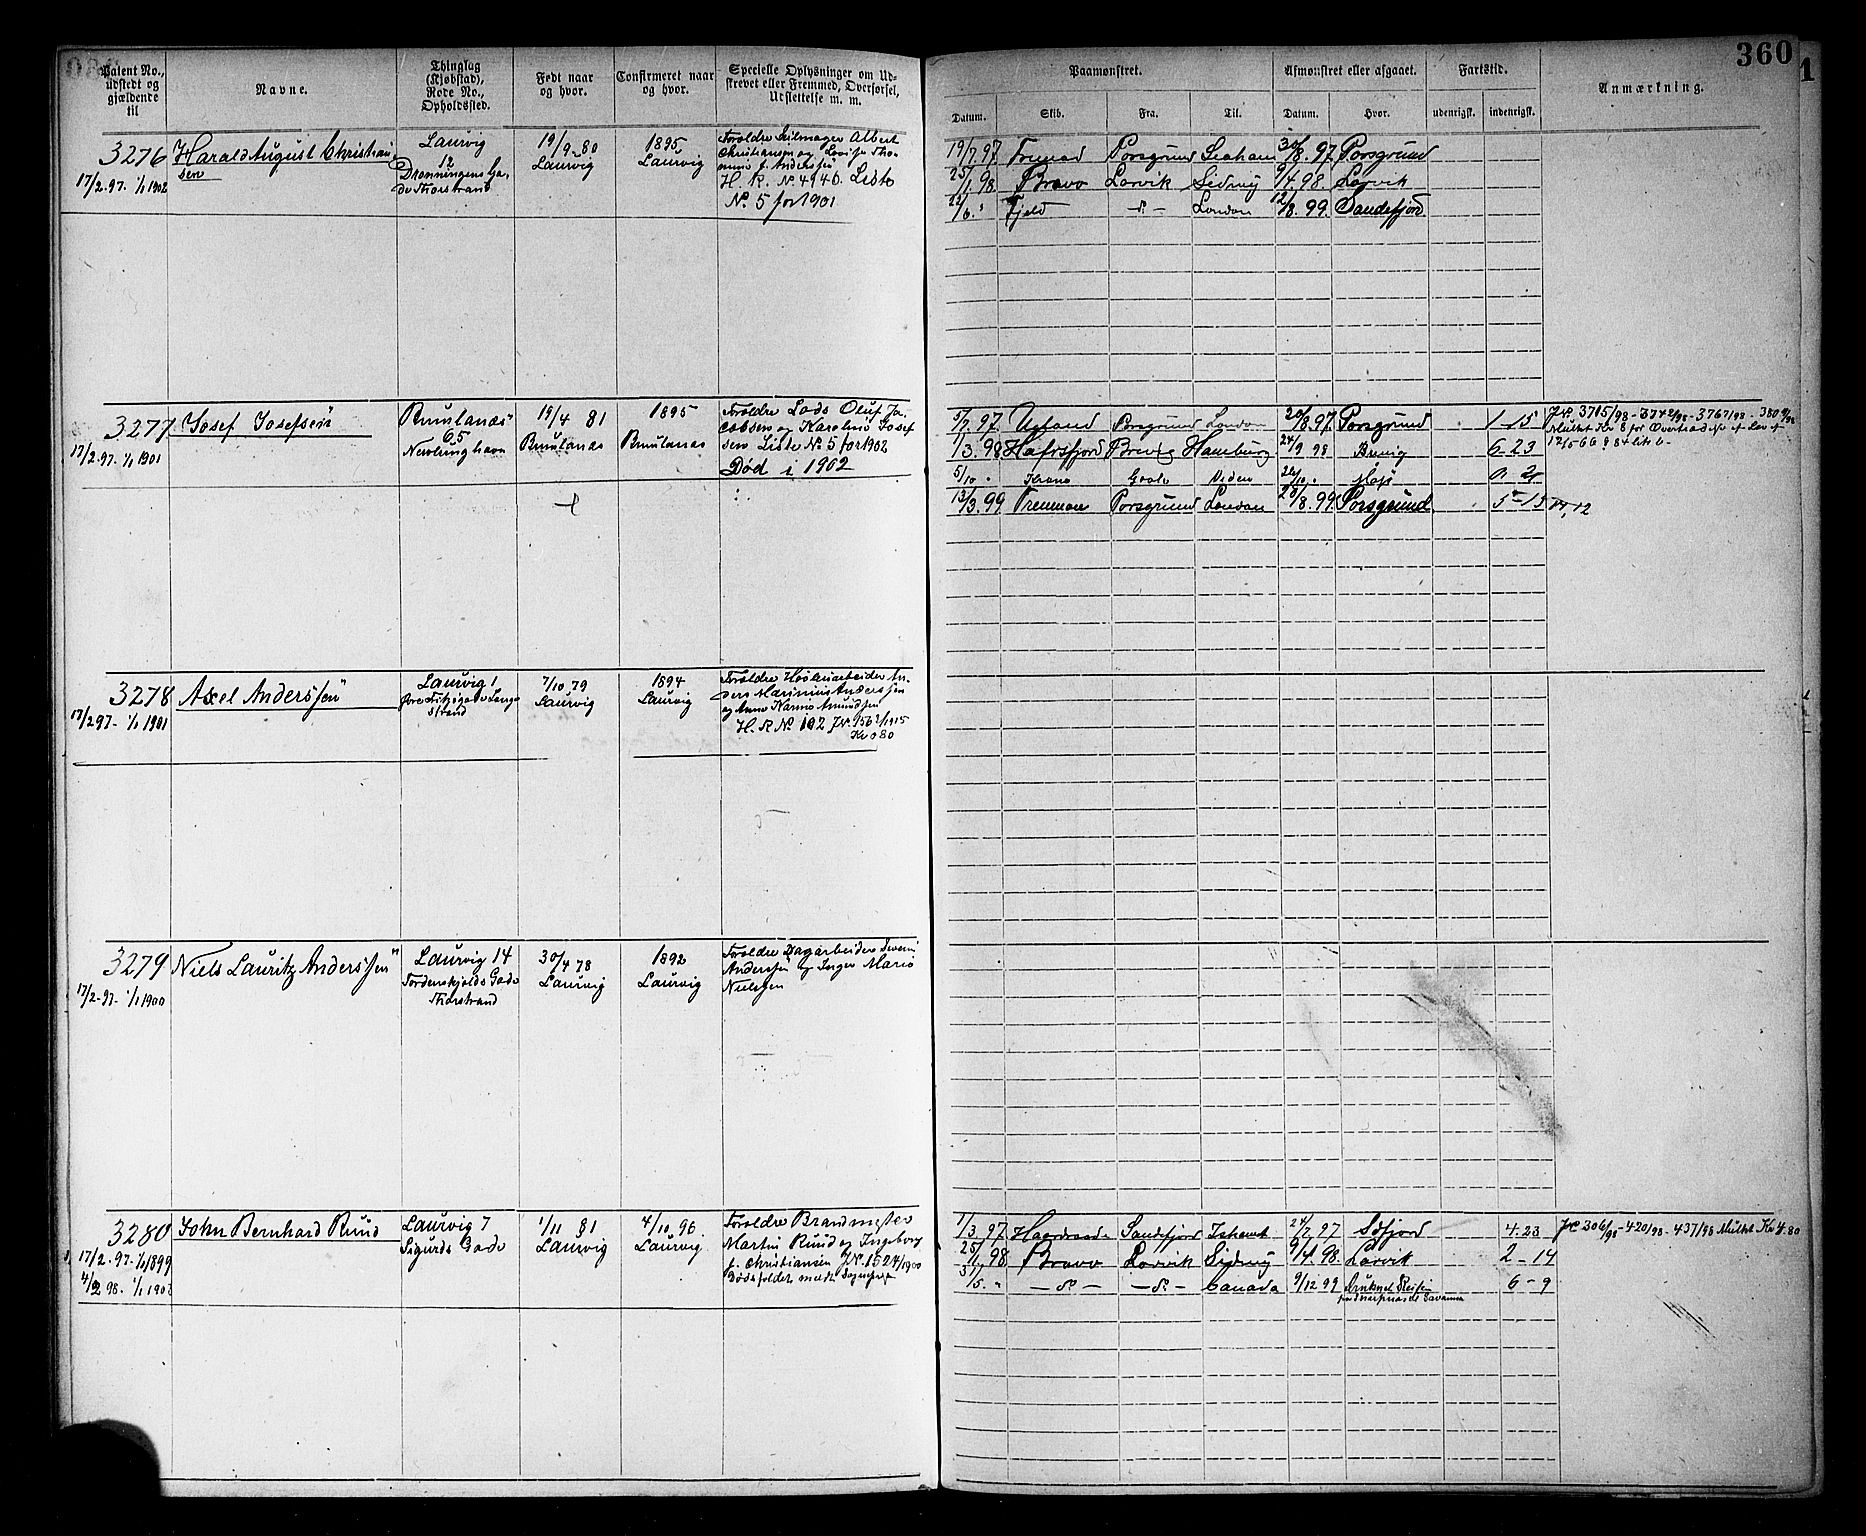 360
Patent No., udstedt og gjældende til
Navne.
Thinglag (Kjøbstad), Rode No., Opholdssted.
Født naar og hvor.
Confirmeret naar og hvor.
Specielle Oplysninger om Udskrevet eller Fremmed, Overførsel, Udslettelse m. m.
Paamønstret.
Afmønstret eller afgaaet.
Fartstid.
Anmærkning.
Datum. Skib. Fra. Til. Datum. Hvor. udenrigsk. indenrigsk.
3276 Harald August Christian
sen
17/2 97. 1/1 1902
Laurvig
12
Dronningens Ga-
de Thorstrand
19/9 80
Laurvig
1895
Laurvig
Forældre Seilmager Albert
Christiansen og
f. Andersen
H. R. N. 4940. Liste
N. 5 for 1901
19/7 97 Porsgrund 30/8. 97. Porsgrund
25/1. 98 Bravo Larvik Sidney 9/4. 98. Larvik
22/6. " Fjeld - d. - London 12/8. 99. Sandefjord
3277 Josef Josefsen
17/2. 97. 1/1 1901
Brunlanæs
65
Nevlunghavn
19/4 81
Brunlanæs
1895
Brunlanæs
Forældre Lods Oluf Ja-
cobsen og Karoline Josef
sen Liste No 5 for 1902
Død i 1902
5/7. 97. Porsgrund London 20/8. 97. Porsgrund 1-15
1/3. 98 Hafrsfjord Brevig Hamburg 24/9 98 Brevig 6-23
5/10 " 26/10. "
13/3. 99 Porsgrund London 28/8. 99. Porsgrund 5-15
J.N. 3715/98 - 3742/98 - 3767/98 - 3809/98
3278 Axel Anderssen
17/2 97- 1/1 1901
Laurvig 1
Langestrand
7/10 79
Laurvig
1894
Laurvig
Forældre Høvleriarbeider An-
ders Marinius Anderssen
og Anne Karine Amundsen
H. R No 102 J.N. 156 2/1915
3279 Niels Lauritz Anderssen
17/2-97- 1/1 1900
Laurvig 14
Tordenskjolds Gade
Thorstrand
30/4 78
Laurvig
1892
Laurvig
Forældre Dagarbeider Severin
Anderssen og Inger Marie
Nielsen
3280 John Bernhard Ruud
17/2-97. 1/1 1899
Laurvig 7
Sigurds Gade
1/11 81
Laurvig
4/10 96
Laurvig
Forældre Brandmester
Martin Ruud og Ingeborg
f. Christiansen J.N. 1524/1900
1/3. 97 Sandefjord 24/7. 97 4.23
25/1. 98 Bravo Larvik Sidney 9/4. 98. Larvik 2-14
31/5. " - d. - - d. - Canada 9/12 99 6-9
J.N. 306/98 - 420/98 - 437/98 Mulkt Kr 4.80